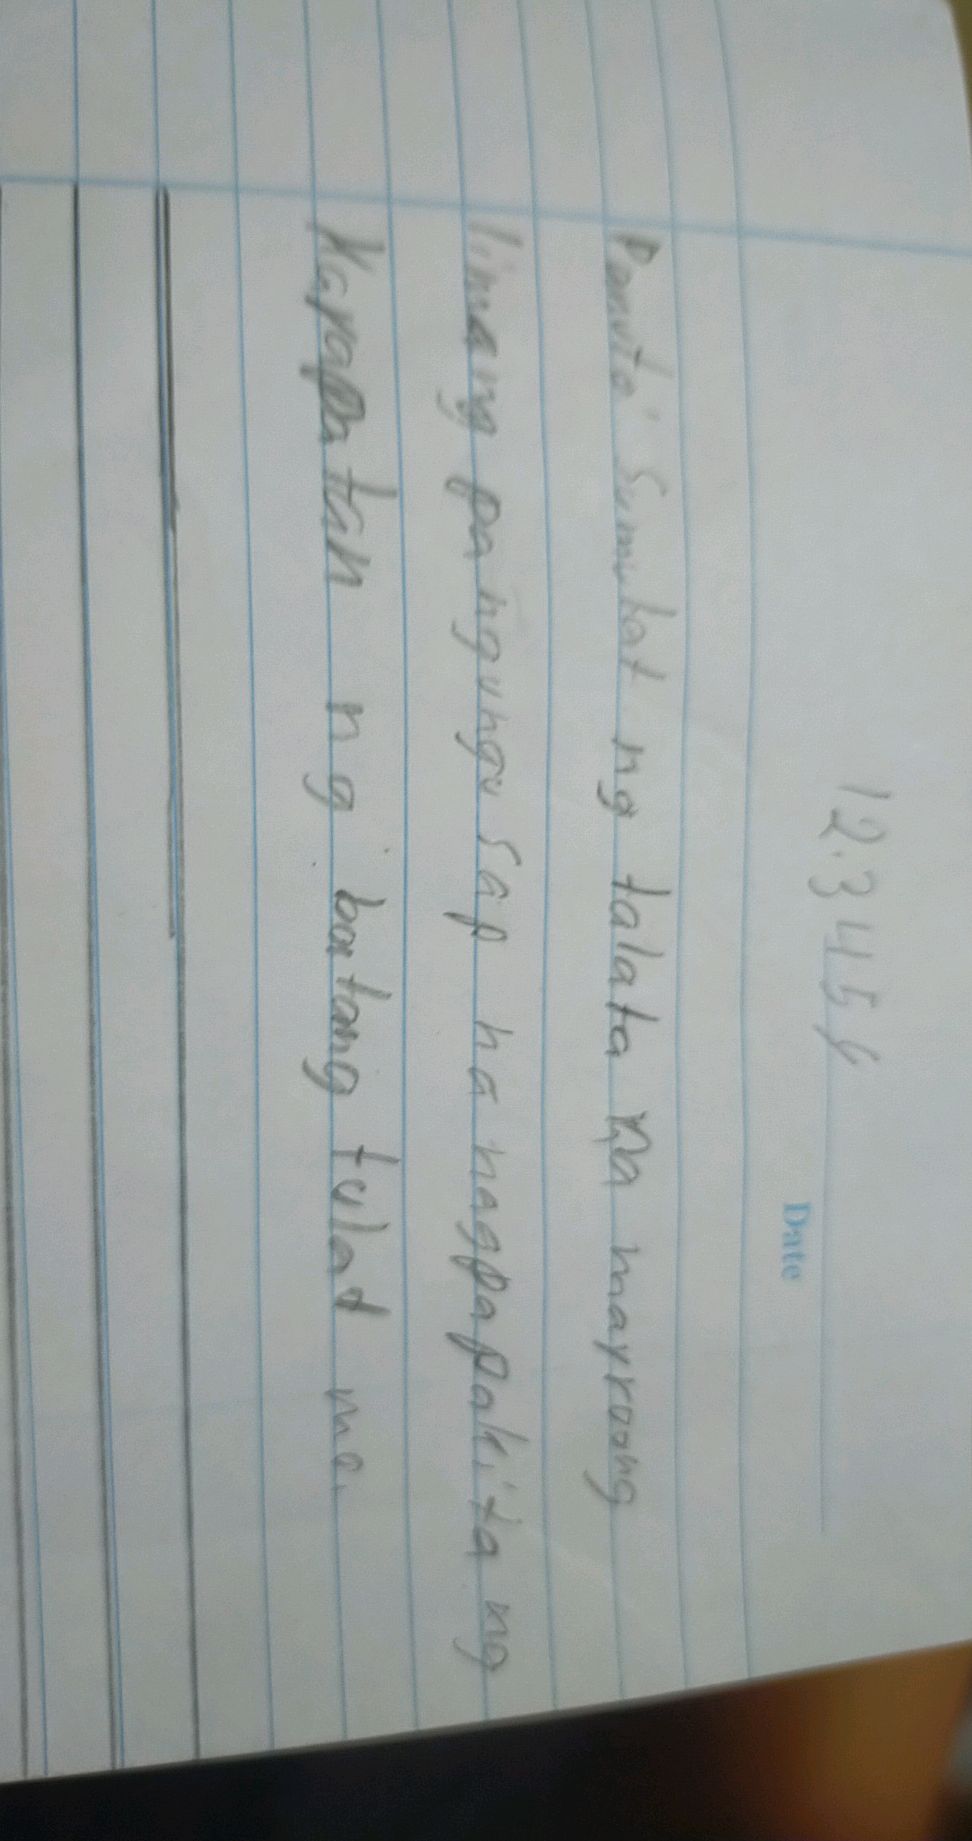 1 2. 3 4 5 6
Date
Panuto: Sumulat ng talata na mayroong
limang pangungusap na nagpapakita ng
Karapatan ng batang tulad mo.